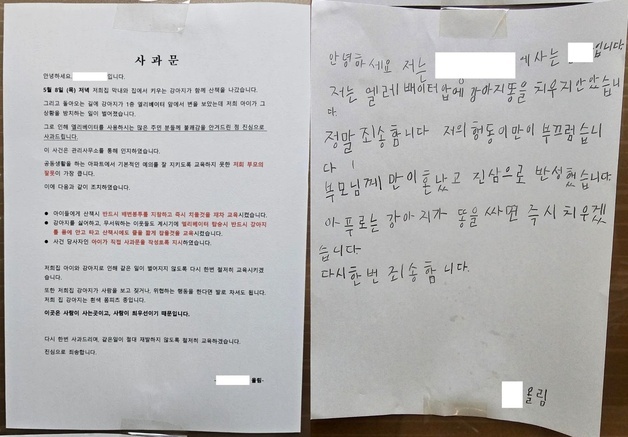 사 과 문
안녕하세요. 입니다.
5월 8일 (목) 저녁 저희집 막내와 집에서 키우는 강아지가 함께 산책을 나갔습니다.
그리고 돌아오는 길에 강아지가 1층 엘리베이터 앞에서 변을 보았는데 저희 아이가 그
상황을 방치하는 일이 벌어졌습니다.
그로 인해 엘리베이터를 사용하시는 많은 주민 분들께 불쾌감을 안겨드린 점 진심으로
사과드립니다.
이 사건은 관리사무소를 통해 인지하였습니다.
공동생활을 하는 아파트에서 기본적인 예의를 잘 지키도록 교육하지 못한 저희 부모의
잘못이 가장 큽니다.
이에 다음과 같이 조치하였습니다.
● 아이들에게 산책시 반드시 배변봉투를 지참하고 즉시 치울것을 재차 교육시켰습니다.
● 강아지를 싫어하고, 무서워하는 이웃들도 계시기에 엘리베이터 탑승시 반드시 강아지
를 품에 안고 타고 산책시에도 줄을 짧게 잡을것을 교육시켰습니다.
● 사건 당사자인 아이가 직접 사과문을 작성토록 지시하였습니다.
저희집 아이와 강아지로 인해 같은 일이 벌어지지 않도록 다시 한번 철저히 교육시키겠
습니다.
또한 저희집 강아지가 사람을 보고 짖거나, 위협하는 행동을 한다면 발로 차셔도 됩니다.
저희 집 강아지는 흰색 폼피츠 종입니다.
이곳은 사람이 사는곳이고, 사람이 최우선이기 때문입니다.
다시 한번 사과드리며, 같은일이 절대 재발하지 않도록 철저히 교육하겠습니다.
진심으로 죄송합니다.
- 올림-
안녕하세요 저는 에사는 입니다
저는 엘레베이터 앞에 강아지똥을 치우지 안았습니
다
정말 죄송합니다 저의 행동이 만이 부끄럽습니
다
부모님께 만이 혼났고 진심으로 반성했습니다
아푸로는 강아지가 똥을 싸면 즉시 치우겠
습니다.
다시한번 죄송합니다.
올림